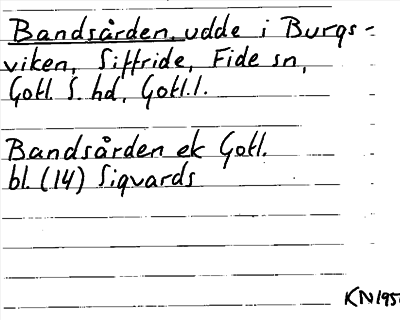 Bandsården, udde i Burgs-
viken, Siffride, Fide sn,
Gotl. S. hd, Gotl.l.
Bandsården ek Gotl.
bl. (14) Sigvards